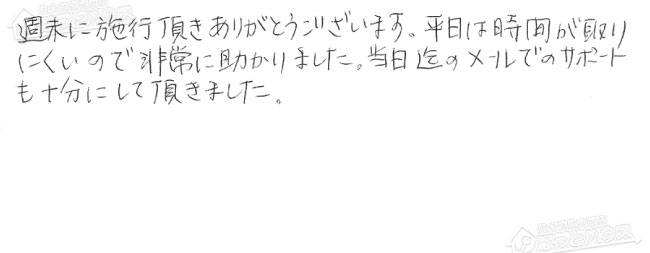 週末に施行頂きありがとうございます。平日は時間が取り
にくいので非常に助かりました。当日迄のメールでのサポート
も十分にして頂きました。